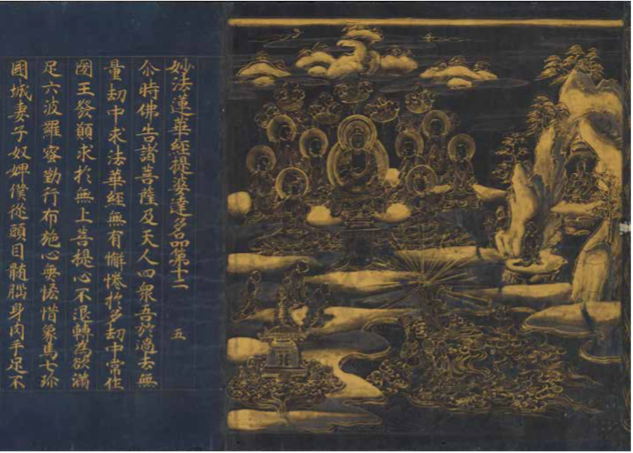 妙法蓮華經提婆達多品第十二 五
尒時佛告諸菩薩及天人四衆吾於過去無
量劫中求法華經無有懈惓於多劫中常作
國王發願求於無上菩提心不退轉為欲滿
足六波羅蜜勤行布施心無悋惜象馬七珎
國城妻子奴婢僕從頭目髓腦身肉手足不